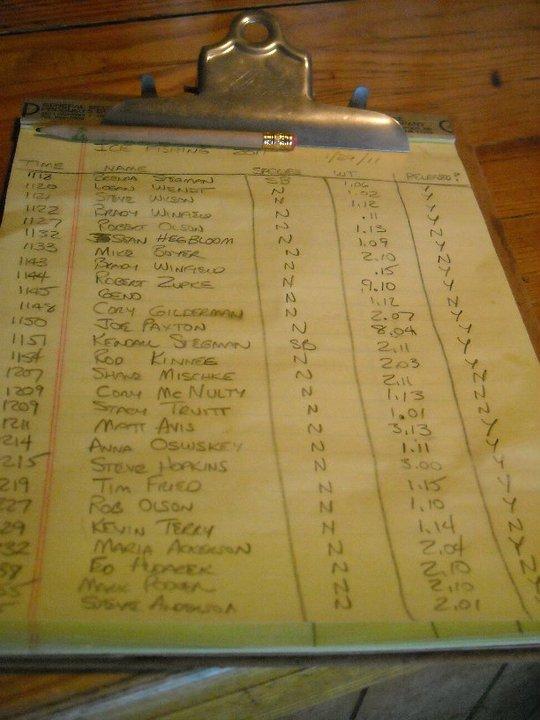 ICE FISHING 2011 1/29/11
TIME NAME SPECIES WT. RELEASED?
1118 BRENDA STEGMAN SB 1.06
1120 LOGAN WENDT N 1.12 Y
1121 STEVE WILSON N Y
1122 BRADY WINFIELD N .11 Y
1127 ROBERT OLSON N 1.13
1132 SEAN HEGBLOOM N 1.09
1133 MIKE BOYER N 2.10
1143 BRADY WINFIELD N .15
1144 ROBERT ZUPKE N 9.10
1145 GENO N 1.12
1148 CORY GILDERMAN N 2.07
1150 JOE PAXTON N 8.04
1151 KENDALL STEGMAN SB 2.11
1154 ROD KINNEE N 2.03
1207 SHANE MISCHKE N 2.11
1209 CORY MCNULTY N 1.13
1209 STACY TRUITT N 1.01
1211 MATT AVIS N 3.13
214 ANNA OSWSKEY N 1.11
215 STEVE HOPKINS N 3.00
219 TIM FRIED N 1.15
227 ROB OLSON N 1.10
29 KEVIN TERRY N 1.14
32 MARIA ACKERSON N 2.04
ED N 2.10
MARK N 2.10
STEVE ANDERSON N 2.01